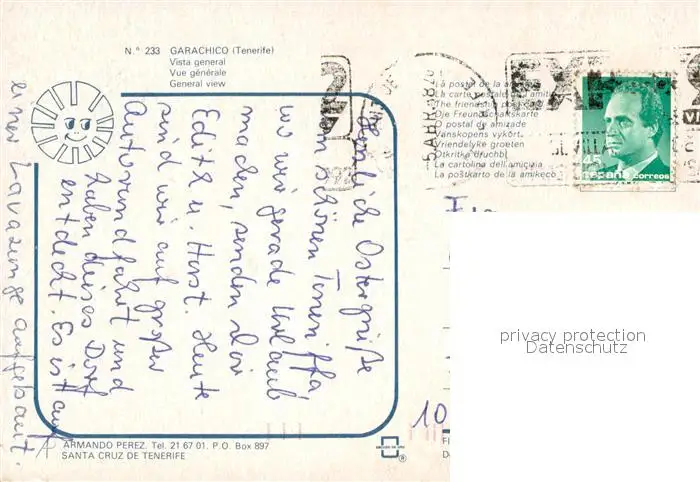 N.º 233 GARACHICO (Tenerife)
Vista general
Vue générale
General view
La postal de la
La carte postale de l'amitié
The friendship postcard
Die Freundschaftskarte
O postal da amizade
Vänskapens vykort.
Vriendelyke groeten
Otkritka druchbi
La cartolina dell'amicizia
La poŝtkarto de la amikeco
5 ABR
EXPO
SEVILLA
45
España correos
Herzliche Ostergrüße
vom schönen Teneriffa,
wo wir gerade Urlaub
machen, senden dir
Edith u. Horst. Heute
sind wir auf großer
Autorundfahrt und
haben dieses Dorf
entdeckt. Es ist auf
einer Lavazunge aufgebaut.
10
privacy protection
Datenschutz
ARMANDO PEREZ. Tel. 21 67 01. P.O. Box 897
SANTA CRUZ DE TENERIFE
®